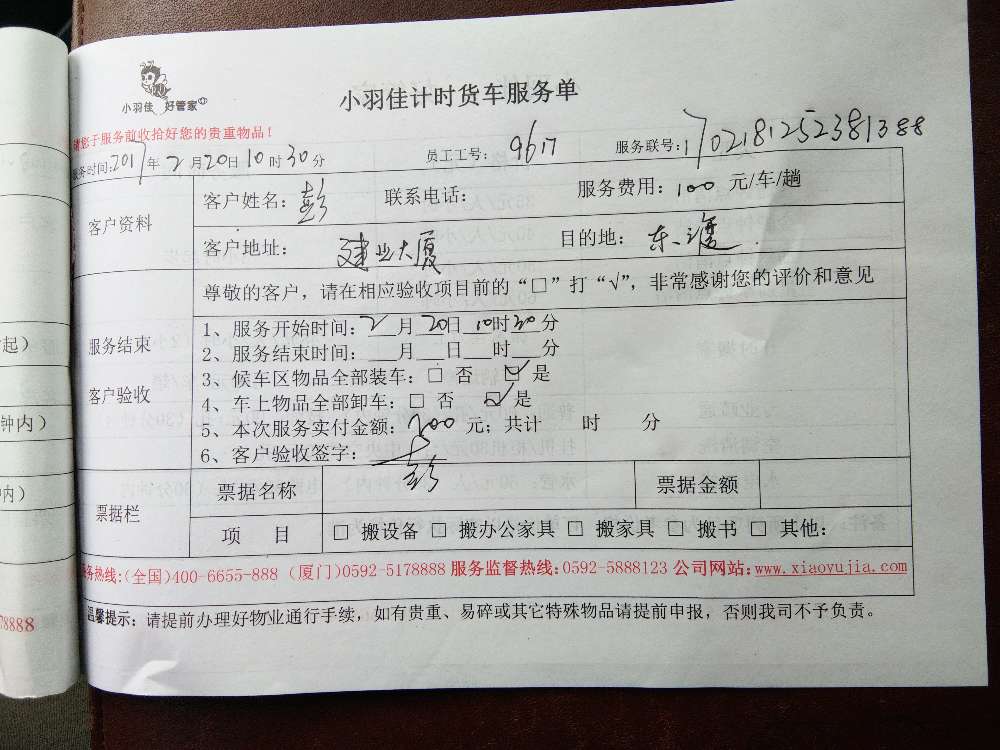 小羽佳 好管家
小羽佳计时货车服务单
请您于服务前收拾好您的贵重物品！
服务时间:2017年2月20日10时30分 员工工号: 9617 服务联号:170218125238１388
客户资料 客户姓名：彭 联系电话： 服务费用：100 元/车/趟
客户地址： 建业大厦 目的地： 东渡
尊敬的客户，请在相应验收项目前的“□”打“√”，非常感谢您的评价和意见
服务结束
客户验收
1、服务开始时间：2月20日10时30分
2、服务结束时间：___月___日___时___分
3、候车区物品全部装车：□ 否 ☑ 是
4、车上物品全部卸车：□ 否 ☑ 是
5、本次服务实付金额：200元；共计 时 分
6、客户验收签字：彭
票据栏 票据名称 票据金额
项 目 □ 搬设备 □ 搬办公家具 □ 搬家具 □ 搬书 □ 其他：
服务热线:(全国)400-6655-888 (厦门)0592-5178888 服务监督热线:0592-5888123 公司网站:www.xiaoyujia.com
温馨提示：请提前办理好物业通行手续，如有贵重、易碎或其它特殊物品请提前申报，否则我司不予负责。
起）
钟内）
内）
78888